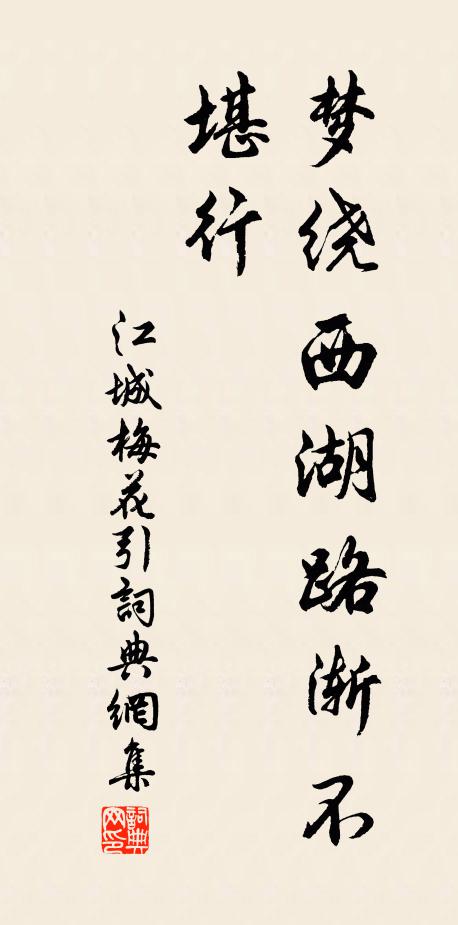 梦绕西湖路渐不
堪行
江城梅花引詞典網集
詞典
网印